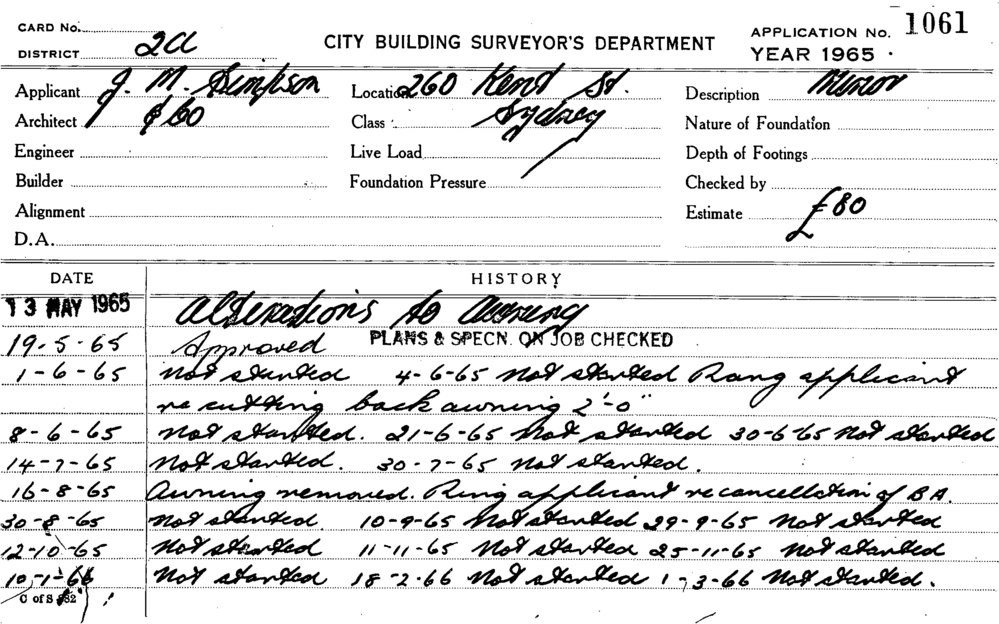 CARD No.
DISTRICT 2a
CITY BUILDING SURVEYOR'S DEPARTMENT
APPLICATION No. 1061
YEAR 1965
Applicant J. M. Simpson
Location 260 Kent St.
Description Minor
Architect
Class Sydney
Nature of Foundation
Engineer
Live Load
Depth of Footings
Builder
Foundation Pressure
Checked by
Alignment
Estimate £80
D.A.
DATE HISTORY
13 MAY 1965 Alterations to awning
19-5-65 Approved PLANS & SPECN. ON JOB CHECKED
1-6-65 Not started 4-6-65 Not started Rang applicant
re cutting back awning 2'-0"
8-6-65 Not started. 21-6-65 Not started 30-6-65 Not started
14-7-65 Not started. 30-7-65 Not started.
16-8-65 Awning removed. Ring applicant re cancellation of BA.
30-8-65 Not started. 10-9-65 Not started 29-9-65 Not started
12-10-65 Not started 11-11-65 Not started 25-11-65 Not started
10-1-66 Not started 18-2-66 Not started 1-3-66 Not started.
C of S